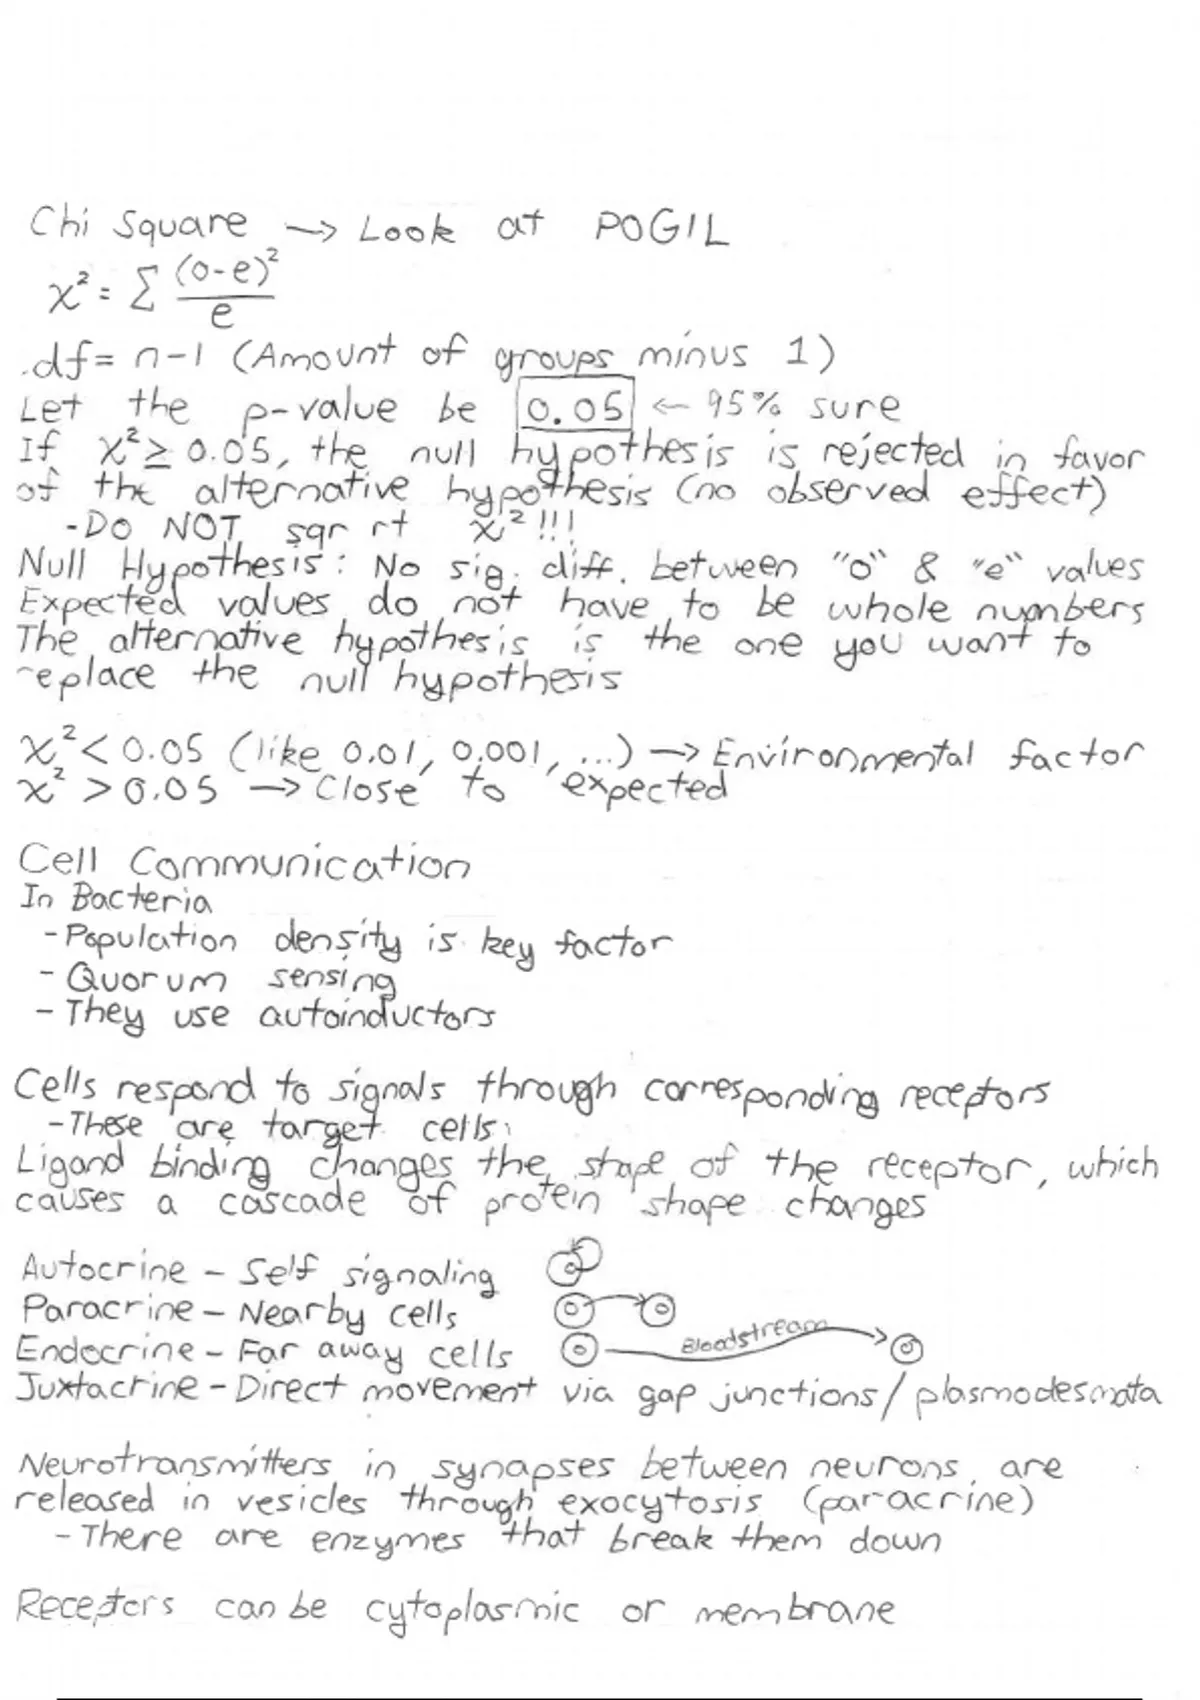 Chi Square → Look at POGIL
χ² = Σ (o-e)²/e
df = n-1 (Amount of groups minus 1)
Let the p-value be 0.05 ← 95% sure
If χ² ≥ 0.05, the null hypothesis is rejected in favor
of the alternative hypothesis (no observed effect)
-Do NOT sqr rt χ²!!!
Null Hypothesis: No sig. diff. between "o" & "e" values
Expected values do not have to be whole numbers
The alternative hypothesis is the one you want to
replace the null hypothesis
χ² < 0.05 (like 0.01, 0.001, ...) → Environmental factor
χ² > 0.05 → Close to expected
Cell Communication
In Bacteria
-Population density is key factor
-Quorum sensing
-They use autoinductors
Cells respond to signals through corresponding receptors
-These are target cells
Ligand binding changes the shape of the receptor, which
causes a cascade of protein shape changes
Autocrine - Self signaling
Paracrine - Nearby cells
Endocrine - Far away cells Bloodstream
Juxtacrine - Direct movement via gap junctions/plasmodesmata
Neurotransmitters in synapses between neurons are
released in vesicles through exocytosis (paracrine)
-There are enzymes that break them down
Receptors can be cytoplasmic or membrane